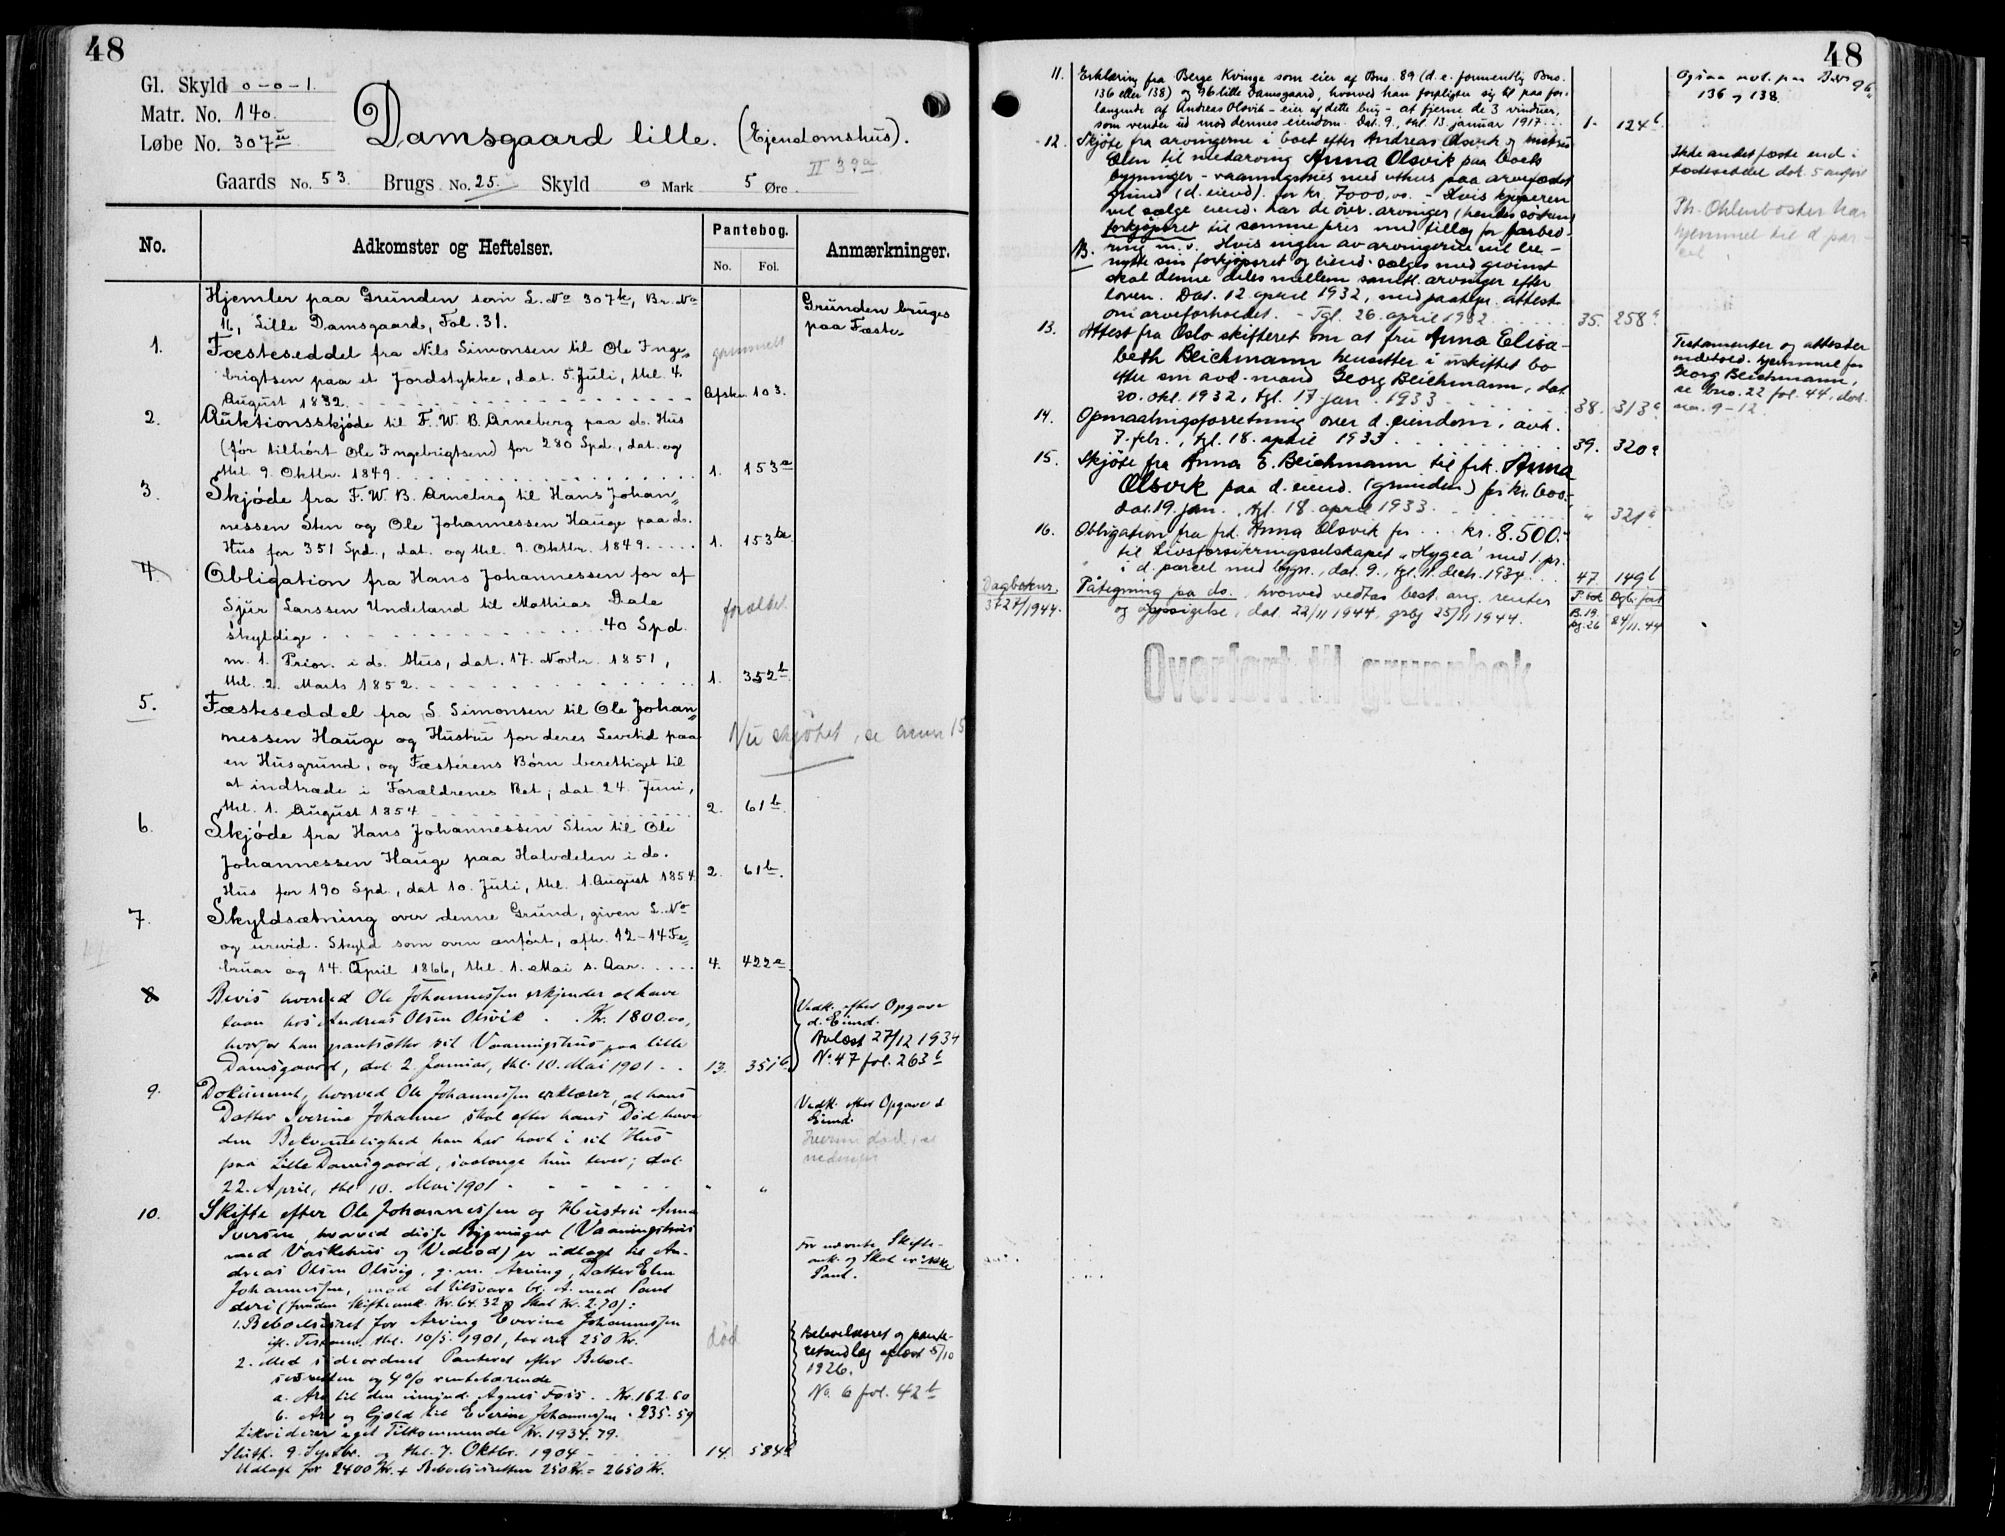 48
Gl. Skyld 0-0-1.
Matr. No. 140.
Løbe No. 307 u
Damsgaard lille. (Ejendomshus).
II 39a
Gaards No. 53. Brugs No. 25. Skyld 0 Mark 5 Øre.
No.
Adkomster og Heftelser.
Pantebog.
No. Fol.
Anmærkninger.
Hjemler paa Grunden som L. No 307k, Br. No
16, Lille Damsgaard, Fol. 31.
Grunden bruges
paa Fæste.
1. Fæsteseddel fra Nils Simonsen til Ole Inge-
brigtsen paa et Jordstykke, dat. 5. Juli, thl. 4.
August 1832
gammelt
Afskr. 103.
2. Auktionsskjøde til F. W. B. Arneberg paa do. Hus
(før tilhørt Ole Ingebrigtsen) for 280 Spd., dat. og
thl. 9. Oktbr. 1849 1. 153a
3. Skjøde fra F. W. B. Arneberg til Hans Johan-
nessen Sten og Ole Johannessen Hauge paa do.
Hus for 351 Spd., dat. og thl. 9. Oktbr. 1849 1. 153b
4. Obligation fra Hans Johannessen for af
Sjur Larssen Undeland til Mathias Dale
skyldige 40 Spd.
forældet
m. 1. Prior. i do. Hus, dat. 17. Novbr. 1851,
thl. 2. Marts 1852 1. 352b
5. Fæsteseddel fra S. Simonsen til Ole Johan-
nessen Hauge og Hustru for deres Levetid paa
Nu skjøtet, se anm 15
en Husgrund, og Fæsterens Børn berettiget til
at indtræde i Forældrenes Ret; dat 24. Juni,
thl. 1. August 1854 2. 61b
6. Skjøde fra Hans Johannessen Sten til Ole
Johannessen Hauge paa Halvdelen i do.
Hus for 190 Spd., dat 10. Juli, thl. 1. August 1854 2. 61b.
7. Skyldsætning over denne Grund, given L. No
og urevid. Skyld som oven anført, afh. 12-14 Fe-
bruar og 14. April 1866, thl. 1. Mai s. Aar. 4. 422a
8 Bevis hvorved Ole Johannessen erkjender at have
laan hos Andreas Olsen Olsvik Kr. 1800.00,
hvorfor han pantsætter sit Vaaningshus paa lille
Damsgaard, dat. 2. Januar, thl. 10. Mai 1901 13. 351b
Vedk. efter Opgave
d. Eiend.
Avlæst 27/12 1934
No 47 fol. 263b
9. Dokument, hvorved Ole Johannessen erklærer, at hans
Datter Iverine Johanne skal efter hans Død have
den Bekvemmelighed hun har havt i sit Hus
paa Lille Damsgaard, saalænge hun lever; dat.
22. April, thl 10. Mai 1901 " "
Vedk. efter Opgave d
Eiend.
død, se
nedenfor
10. Skifte efter Ole Johannessen og Hustru Anna
Iversen, hvorved disse Bygninger (Vaaningshus
med Vaskehus og Vedbod) er udlagt til An-
dreas Olsen Olsvig, g. m. Arving, Datter Elen
Johannessen, mod at tilsvare bl. A. med Pant
deri (foruden Skifteomk. Kr. 64.32 og Skat Kr. 2.70):
For nævnte Skifte-
omk. og Skat er ikke
Pant.
1. Beboelsesret for Arving Everine Johannessen
ifl. Testam. thl. 10/5. 1901, taxeret 250 Kr.
død
2. Med sideordnet Panteret efter Beboel-
sesretten og 4% rentebærende
a. Arv til den umynd. Agnes Foss Kr. 162.60
b. Arv og Gjæld til Everine Johannessen 235.59
Beboelsesret og pante-
retsudlæg aflæst 5/10
1926.
No. 6 fol. 42b
Likviderer eget Tilkommende Kr. 1934.79.
Slutt. 9. Septbr. og thl. 7. Oktbr. 1904 14. 584a
Udlagt for 2400 Kr. + Beboelsesretten 250 Kr. = 2650 Kr.
48
11. Erklæring fra Berge Kvinge som eier af Bno. 89 (d.e. formentlig Bno.
136 eller 138) og 96 lille Damsgaard, hvorved han forpligter sig til paa for-
langende af Andreas Olsvik - eier af dette brug - at fjerne de 3 vinduer,
som vender ud mod dennes eiendom. Dat. 9., thl. 13. januar 1917 1- 124b
Ogsaa not. paa Bno 96
136 og 138.
12. Skjøte fra arvingerne i boet efter Andreas Olsvik og hustru
Elen til medarving Anna Olsvik paa boets
bygninger - vaaningshus med uthus paa arvefæstet
grund (d. eiend). for kr. 7000,00. - Hvis kjøperen
vil sælge eiend. har de øvr. arvinger (hendes søsken)
forkjøpsret til samme pris med tillæg for forbed-
ring m.v. Hvis ingen av arvingerne vil be-
B. nytte sin forkjøpsret og eiend. sælges med gevinst
skal denne deles mellem samtl. arvinger efter
loven. Dat. 12 april 1932, med paategn. attest
om arveforholdet. - Tgl. 26. april 1932 35. 258a
Ikke andet fæste end i
fæsteseddel dok. 5 anført
Th. Ohlenbostel har
hjemmel til d. par-
cel.
13. Attest fra Oslo skifteret om at fru Anna Elisa-
beth Beichmann hensitter i uskiftet bo
efter sin avd. mand Georg Beichmann, dat.
20. okt. 1932, tgl. 17 jan. 1933 38. 313a
Testamenter og attester
indehold. hjemmel for
Georg Beichmann,
se bno. 22 fol. 44, dok.
no. 9-12
14. Opmaalingsforretning over d. eiendom, avh.
7. febr., tgl. 18. april 1933 39. 320a
15. Skjøte fra Anna E. Beichmann til frk. Anna
Olsvik paa d. eiend. (grunden) for kr. 600.-
dat. 19. jan., tgl. 18. april 1933 " 321a
16. Obligation fra frk. Anna Olsvik for kr. 8.500.-
til Livsforsikringsselskapet "Hygea" med 1. pr.
i d. parcel med bygn., dat. 9., tgl. 11. decb. 1934 47. 149b
Dagboknr.
3727/1944.
Påtegning på do., hvorved vedtas best. ang. renter
og oppsigelse, dat. 22/11 1944, gsbj 25/11 1944.
P. bok Dgb. ført
B. 19.
pg. 26 24/11. 44
Overført til grunnbok